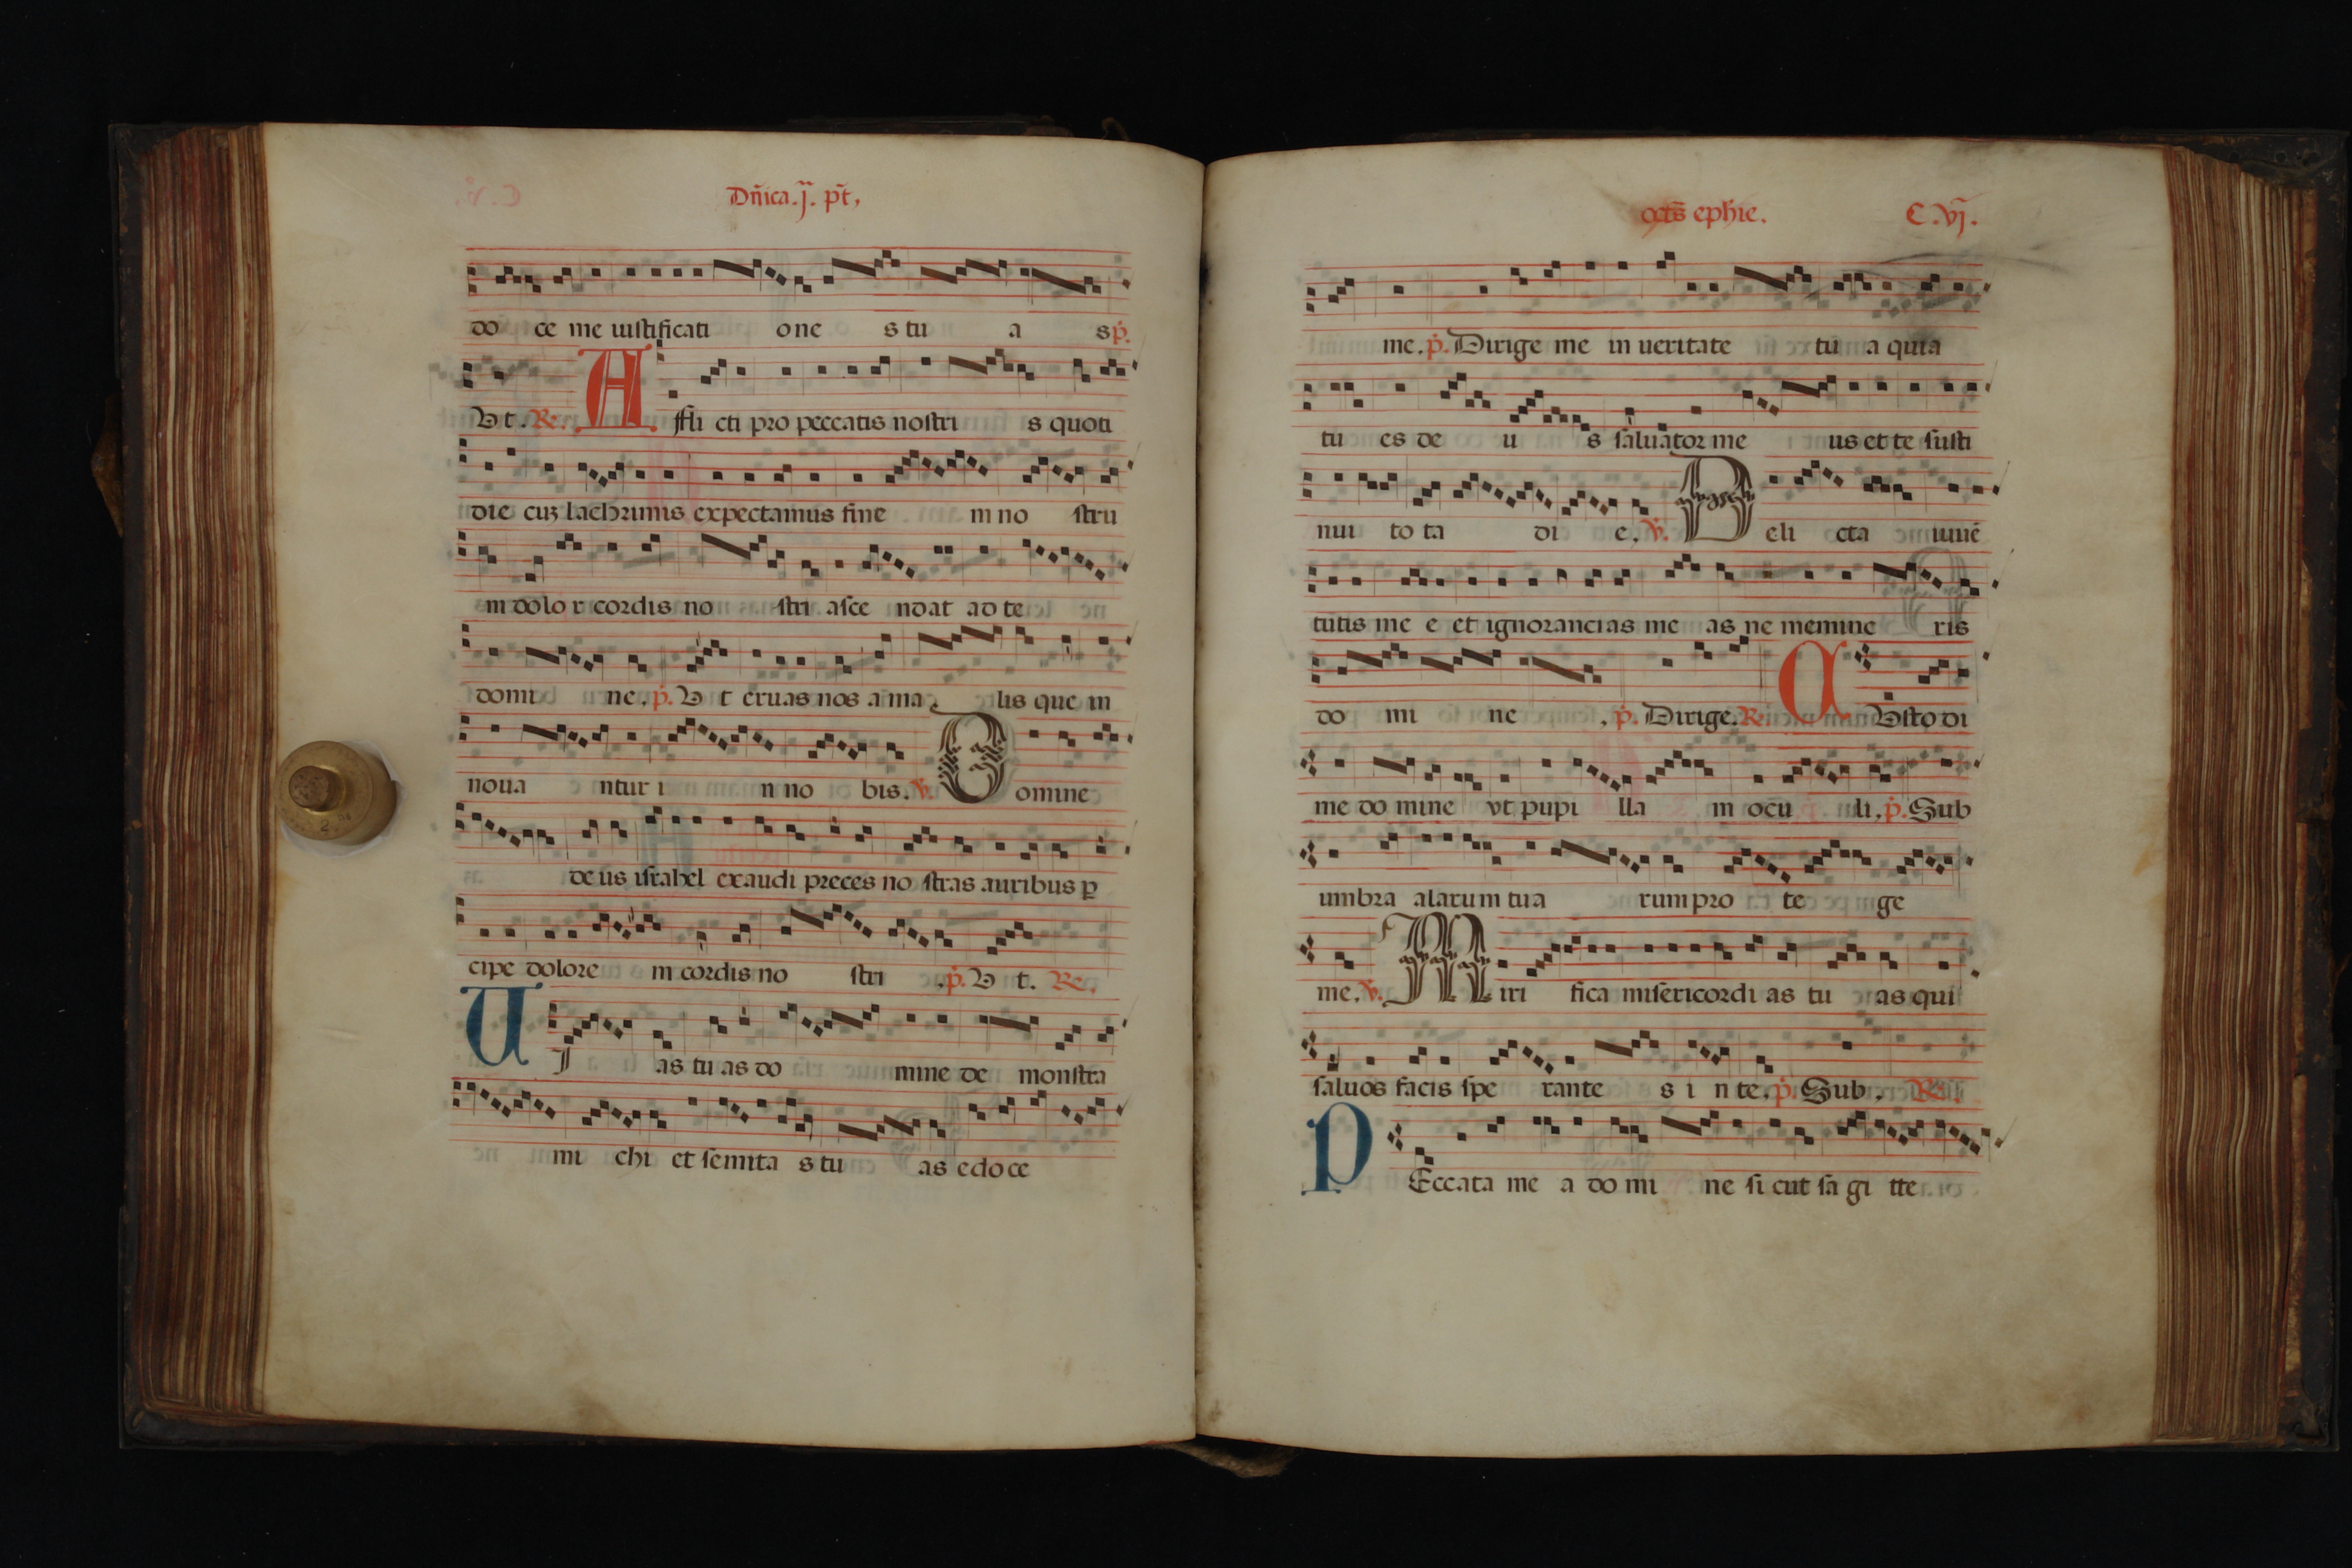 Dñica.j. pt̃,
do ce me iustificati one s tu a s p̃.
Vt. Re. A ffli cti pro peccatis nostri s quoti
die cuz lachrimis expectamus fine m no stru
m dolo r cordis no stri asce ndat ad te
domi ne. p̃. V t eruas nos a ma lis que in
noua ntur i n no bis. ṽ. D omine
de us israhel exaudi preces no stras auribus ꝑ
cipe dolore m cordis no stri .p̃. V t. Re.
U J as tu as do mine de monstra
mi chi et semita s tu as edo ce
octs̃ ephie. C.vj.
me. p̃. Dirige me in ueritate tu a quia
tu es de u s saluator me us et te susti
nui to ta di e. ṽ. D eli cta iuuē
tutis me e et ignorancias me as ne memine ris
do mi ne , p̃. Dirige. Re. C Vsto di
me do mine vt pupi lla m ocu li, p̃. Sub
umbra alarum tua rum pro te ge
me. ṽ. M iri fica misericordi as tu as qui
saluos facis spe rante s i n te. p̃. Sub. Re.
P Eccata me a do mi ne si cut sa gi tte